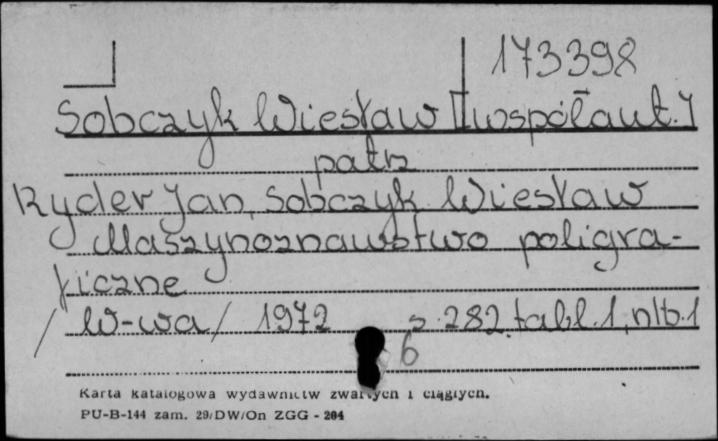 173398
Sobczyk Wiesław [współaut.]
patrz
Ryder Jan, Sobczyk Wiesław
Maszynoznawstwo poligra-
ficzne
/W-wa/ 1972 s. 282 tabl. 1, nlb. 1
6
Karta katalogowa wydawnictw zwartych i ciągłych.
PU-B-144 zam. 29/DW/On ZGG - 204